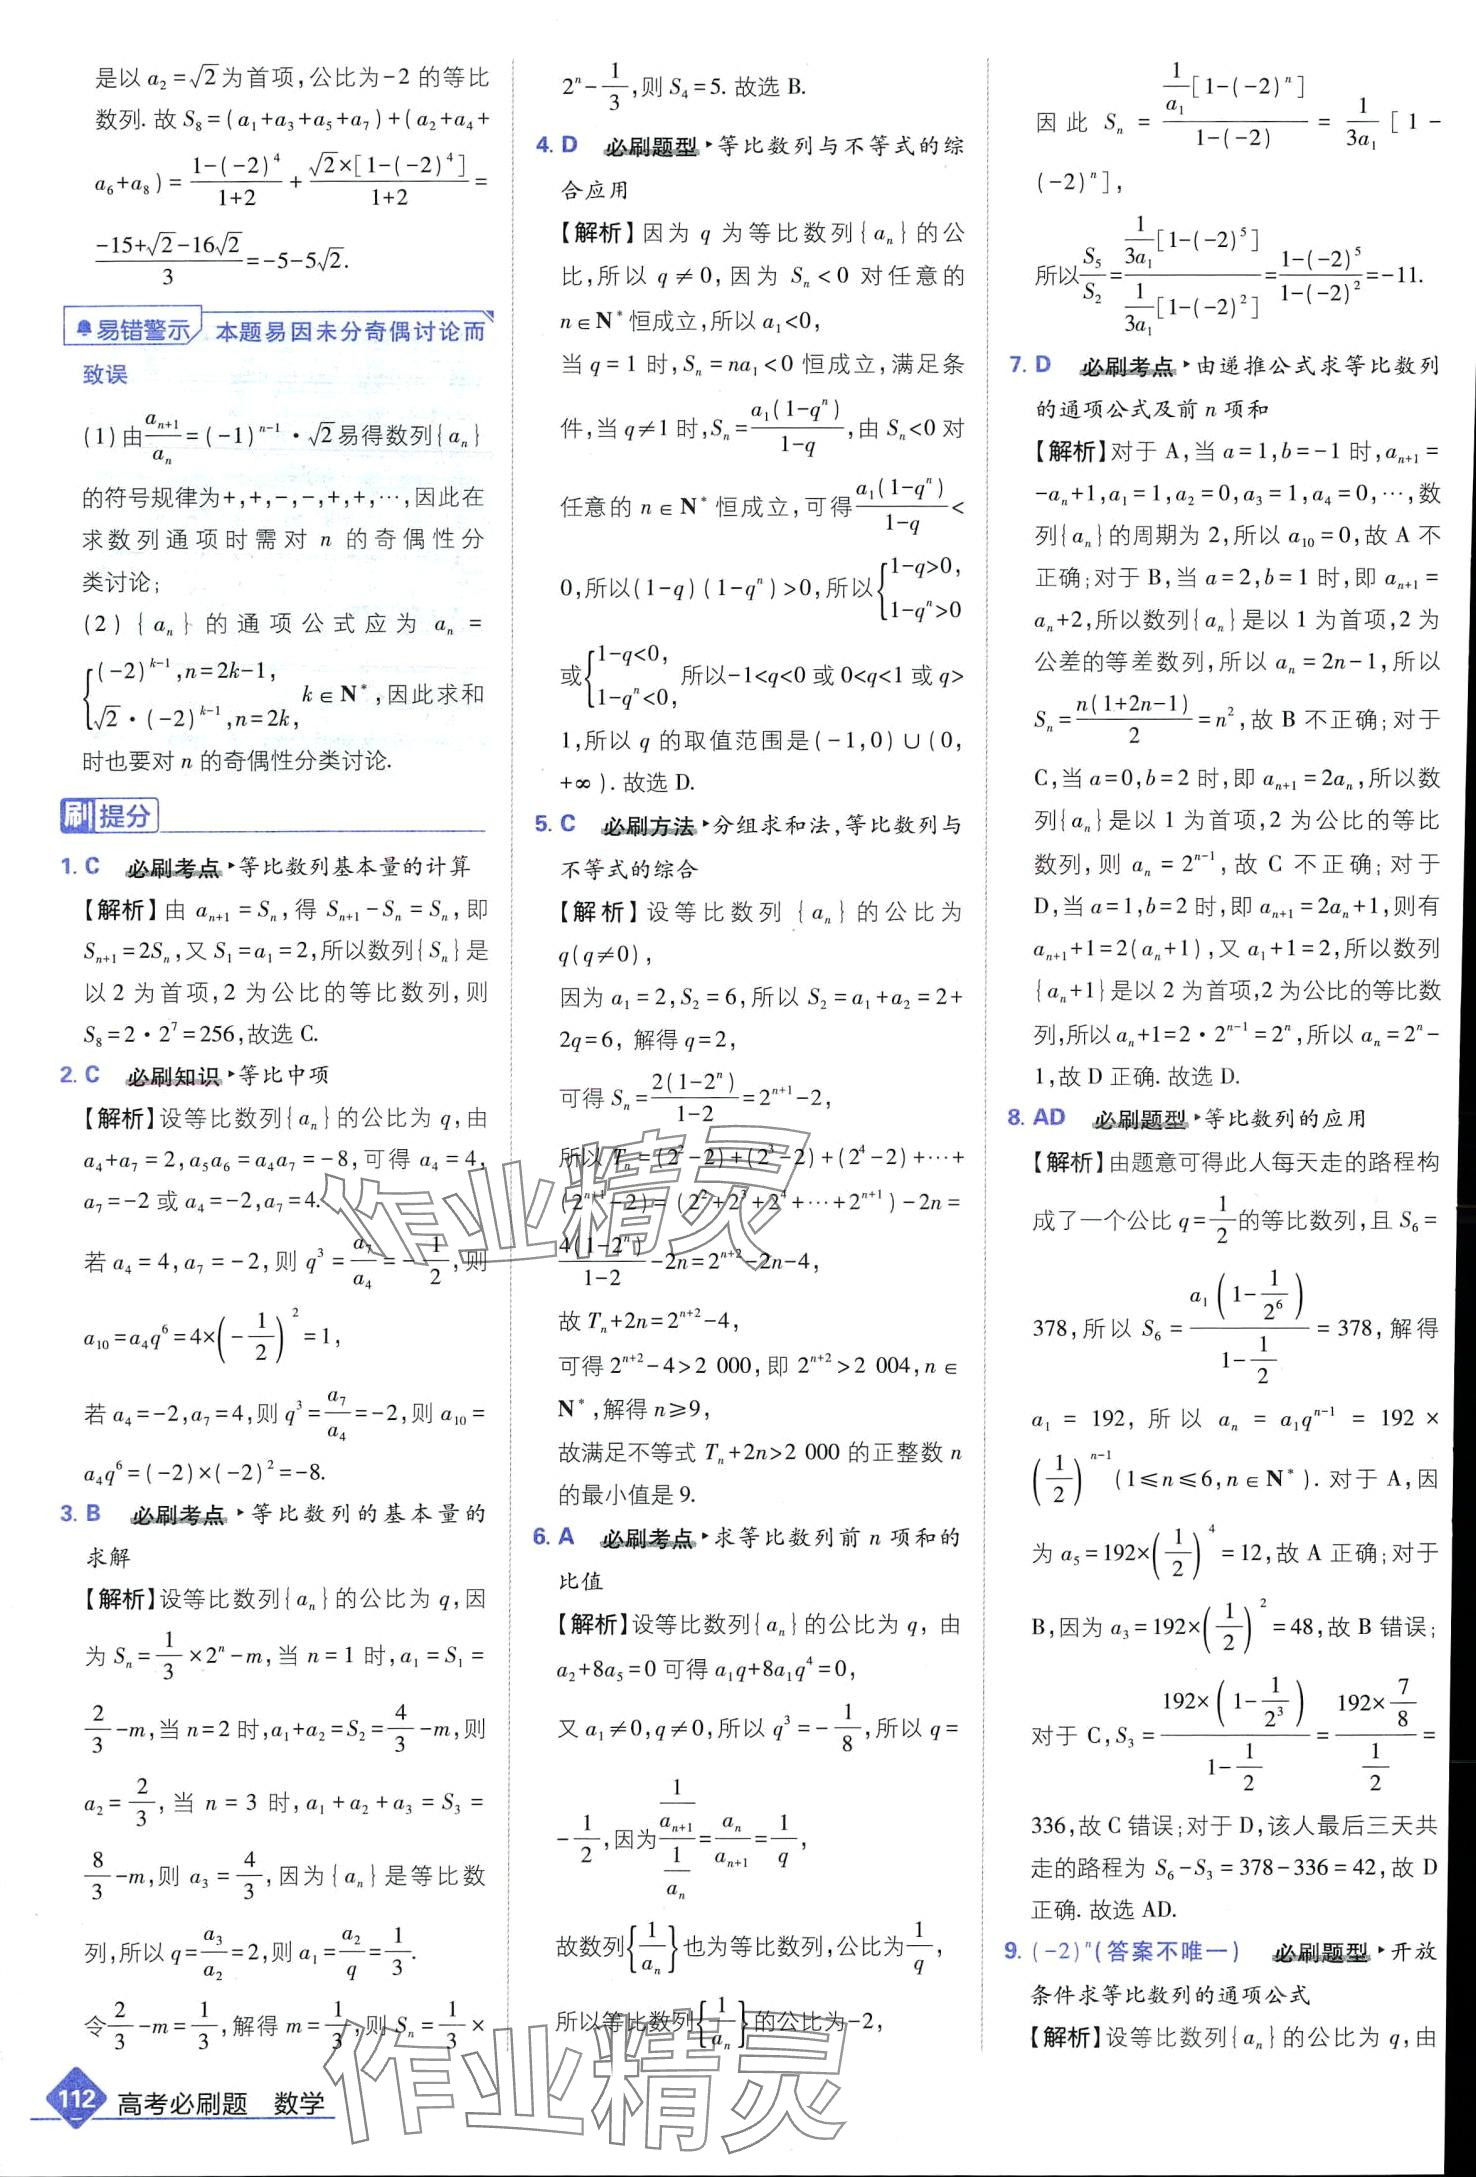 是以 a₂=√2为首项,公比为-2 的等比
数列. 故 S₈=(a₁+a₃+a₅+a₇)+(a₂+a₄+
a₆+a₈)=(1-(-2)⁴)/(1+2)+(√2×[1-(-2)⁴])/(1+2)=
(-15+√2-16√2)/3=-5-5√2.
易错警示 本题易因未分奇偶讨论而
致误
(1)由aₙ₊₁/aₙ=(-1)ⁿ⁻¹·√2易得数列{aₙ}
的符号规律为+,+,-,-,+,+,…,因此在
求数列通项时需对 n 的奇偶性分
类讨论;
(2){aₙ}的通项公式应为 aₙ=
{(-2)ᵏ⁻¹,n=2k-1,
√2·(-2)ᵏ⁻¹,n=2k, k∈N*,因此求和
时也要对 n 的奇偶性分类讨论.
刷提分
1. C 必刷考点 等比数列基本量的计算
【解析】由 aₙ₊₁=Sₙ,得 Sₙ₊₁-Sₙ=Sₙ,即
Sₙ₊₁=2Sₙ,又 S₁=a₁=2,所以数列{Sₙ}是
以 2 为首项,2 为公比的等比数列,则
S₈=2·2⁷=256,故选 C.
2. C 必刷知识 等比中项
【解析】设等比数列{aₙ}的公比为 q,由
a₄+a₇=2,a₅a₆=a₄a₇=-8,可得 a₄=4,
a₇=-2 或 a₄=-2,a₇=4.
若 a₄=4,a₇=-2,则 q³=a₇/a₄=-1/2,则
a₁₀=a₄q⁶=4×(-1/2)²=1,
若 a₄=-2,a₇=4,则 q³=a₇/a₄=-2,则 a₁₀=
a₄q⁶=(-2)×(-2)²=-8.
3. B 必刷考点 等比数列的基本量的
求解
【解析】设等比数列{aₙ}的公比为 q,因
为 Sₙ=1/3×2ⁿ-m,当 n=1 时,a₁=S₁=
2/3-m,当 n=2 时,a₁+a₂=S₂=4/3-m,则
a₂=2/3,当 n=3 时,a₁+a₂+a₃=S₃=
8/3-m,则 a₃=4/3,因为{aₙ}是等比数
列,所以 q=a₃/a₂=2,则 a₁=a₂/q=1/3.
令2/3-m=1/3,解得 m=1/3,则 Sₙ=1/3×
112 高考必刷题 数学
2ⁿ-1/3,则 S₄=5. 故选 B.
4. D 必刷题型 等比数列与不等式的综
合应用
【解析】因为 q 为等比数列{aₙ}的公
比,所以 q≠0,因为 Sₙ<0 对任意的
n∈N*恒成立,所以 a₁<0,
当 q=1 时,Sₙ=na₁<0 恒成立,满足条
件,当 q≠1 时,Sₙ=a₁(1-qⁿ)/(1-q),由 Sₙ<0 对
任意的 n∈N*恒成立,可得a₁(1-qⁿ)/(1-q)<
0,所以(1-q)(1-qⁿ)>0,所以{1-q>0,
1-qⁿ>0
或{1-q<0,
1-qⁿ<0, 所以-1<q<0 或 0<q<1 或 q>
1,所以 q 的取值范围是(-1,0)∪(0,
+∞). 故选 D.
5. C 必刷方法 分组求和法,等比数列与
不等式的综合
【解析】设等比数列{aₙ}的公比为
q(q≠0),
因为 a₁=2,S₂=6,所以 S₂=a₁+a₂=2+
2q=6,解得 q=2,
可得 Sₙ=2(1-2ⁿ)/(1-2)=2ⁿ⁺¹-2,
所以 Tₙ=(2²-2)+(2³-2)+(2⁴-2)+…+
(2ⁿ⁺¹-2)=(2²+2³+2⁴+…+2ⁿ⁺¹)-2n=
4(1-2ⁿ)/(1-2)-2n=2ⁿ⁺²-2n-4,
故 Tₙ+2n=2ⁿ⁺²-4,
可得 2ⁿ⁺²-4>2 000,即 2ⁿ⁺²>2 004,n∈
N*,解得 n≥9,
故满足不等式 Tₙ+2n>2 000 的正整数 n
的最小值是 9.
6. A 必刷考点 求等比数列前 n 项和的
比值
【解析】设等比数列{aₙ}的公比为 q,由
a₂+8a₅=0 可得 a₁q+8a₁q⁴=0,
又 a₁≠0,q≠0,所以 q³=-1/8,所以 q=
-1/2,因为(1/aₙ₊₁)/(1/aₙ)=aₙ/aₙ₊₁=1/q,
故数列{1/aₙ}也为等比数列,公比为1/q,
所以等比数列{1/aₙ}的公比为-2,
因此 Sₙ=(1/a₁[1-(-2)ⁿ])/(1-(-2))=1/(3a₁)[1-
(-2)ⁿ],
所以S₅/S₂=(1/(3a₁)[1-(-2)⁵])/(1/(3a₁)[1-(-2)²])=(1-(-2)⁵)/(1-(-2)²)=-11.
7. D 必刷考点 由递推公式求等比数列
的通项公式及前 n 项和
【解析】对于 A,当 a=1,b=-1 时,aₙ₊₁=
-aₙ+1,a₁=1,a₂=0,a₃=1,a₄=0,…,数
列{aₙ}的周期为 2,所以 a₁₀=0,故 A 不
正确;对于 B,当 a=2,b=1 时,即 aₙ₊₁=
aₙ+2,所以数列{aₙ}是以 1 为首项,2 为
公差的等差数列,所以 aₙ=2n-1,所以
Sₙ=n(1+2n-1)/2=n²,故 B 不正确;对于
C,当 a=0,b=2 时,即 aₙ₊₁=2aₙ,所以数
列{aₙ}是以 1 为首项,2 为公比的等比
数列,则 aₙ=2ⁿ⁻¹,故 C 不正确;对于
D,当 a=1,b=2 时,即 aₙ₊₁=2aₙ+1,则有
aₙ₊₁+1=2(aₙ+1),又 a₁+1=2,所以数列
{aₙ+1}是以 2 为首项,2 为公比的等比数
列,所以 aₙ+1=2·2ⁿ⁻¹=2ⁿ,所以 aₙ=2ⁿ-
1,故 D 正确. 故选 D.
8. AD 必刷题型 等比数列的应用
【解析】由题意可得此人每天走的路程构
成了一个公比 q=1/2的等比数列,且 S₆=
378,所以 S₆=(a₁(1-1/2⁶))/(1-1/2)=378,解得
a₁=192,所以 aₙ=a₁qⁿ⁻¹=192×
(1/2)ⁿ⁻¹(1≤n≤6,n∈N*). 对于 A,因
为 a₅=192×(1/2)⁴=12,故 A 正确;对于
B,因为 a₃=192×(1/2)²=48,故 B 错误;
对于 C,S₃=(192×(1-1/2³))/(1-1/2)=(192×7/8)/(1/2)=
336,故 C 错误;对于 D,该人最后三天共
走的路程为 S₆-S₃=378-336=42,故 D
正确. 故选 AD.
9. (-2)ⁿ(答案不唯一) 必刷题型 开放
条件求等比数列的通项公式
【解析】设等比数列{aₙ}的公比为 q,由
作业精灵
作业精灵